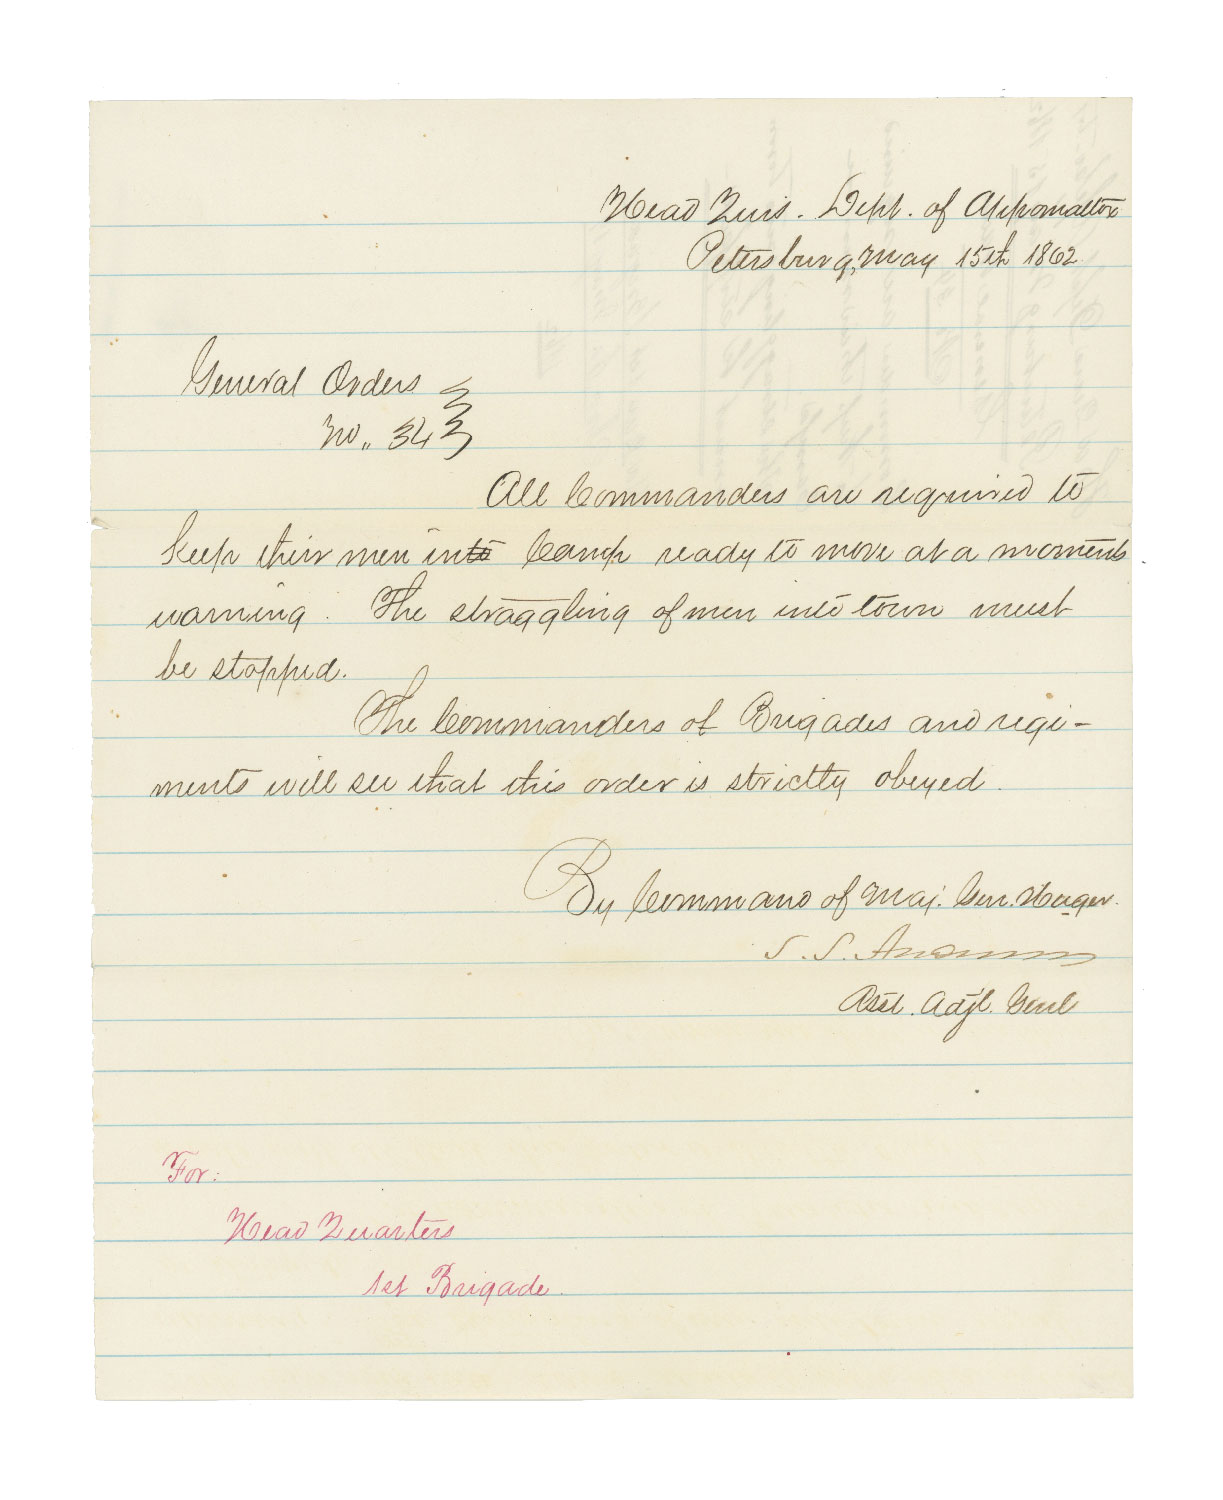 Head Qurs. Dept. of Appomattox
Petersburg, May 15th 1862
General Orders
No. 34
All Commanders are required to
keep their men into Camp ready to move at a moments
warning. The straggling of men into town must
be stopped.
The Commanders of Brigades and regi-
ments will see that this order is strictly obeyed.
By Command of Maj. Gen. Huger.
S. S. Anderson
Asst. Adjt. Genl
For.
Head Quarters
1st Brigade.